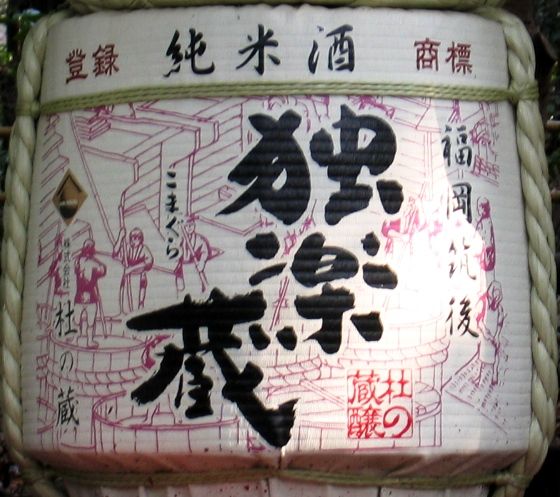 登録 純米酒 商標
福岡筑後
独楽蔵
こまぐら
株式会社 杜の蔵
杜の
蔵醸